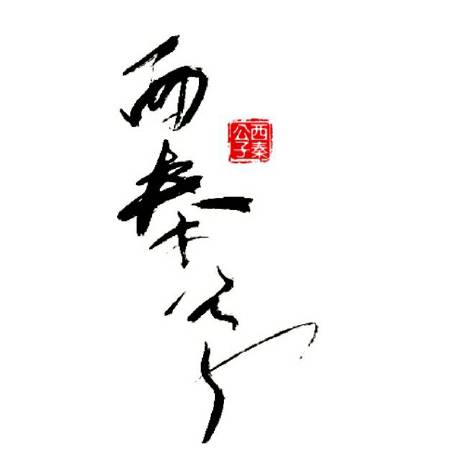 西秦公子
西秦
公子